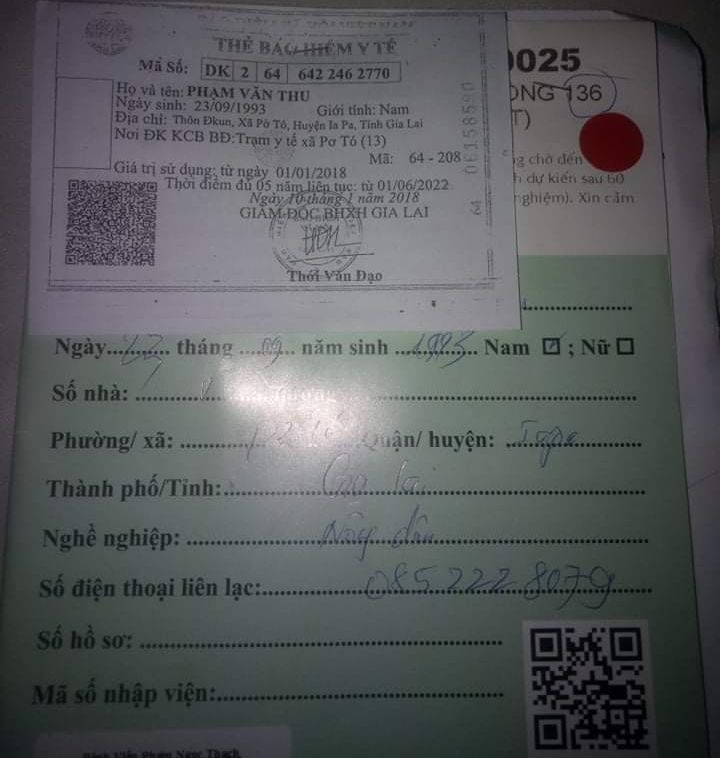 THẺ BẢO HIỂM Y TẾ
Mã Số: DK 2 64 642 246 2770
Họ và tên: PHẠM VĂN THU
Ngày sinh: 23/09/1993 Giới tính: Nam
Địa chỉ: Thôn Đkun, Xã Pờ Tó, Huyện Ia Pa, Tỉnh Gia Lai
Nơi ĐK KCB BĐ: Trạm y tế xã Pơ Tó (13)
Mã: 64 - 208
Giá trị sử dụng: từ ngày 01/01/2018
Thời điểm đủ 05 năm liên tục: từ 01/06/2022
Ngày 10 tháng 1 năm 2018
GIÁM ĐỐC BHXH GIA LAI
Thới Văn Đạo
64 06158590
0025
ÒNG 136
T)
g chờ đến
h dự kiến sau 60
nghiệm). Xin cảm
Ngày 23 tháng 09 năm sinh 1993 Nam ☑ ; Nữ ☐
Số nhà:
Phường/ xã: Quận/ huyện: Iapa
Thành phố/Tỉnh: Gia lai
Nghề nghiệp: Nông dân
Số điện thoại liên lạc: 085 222 8079
Số hồ sơ:
Mã số nhập viện:
Bệnh Viện Phạm Ngọc Thạch